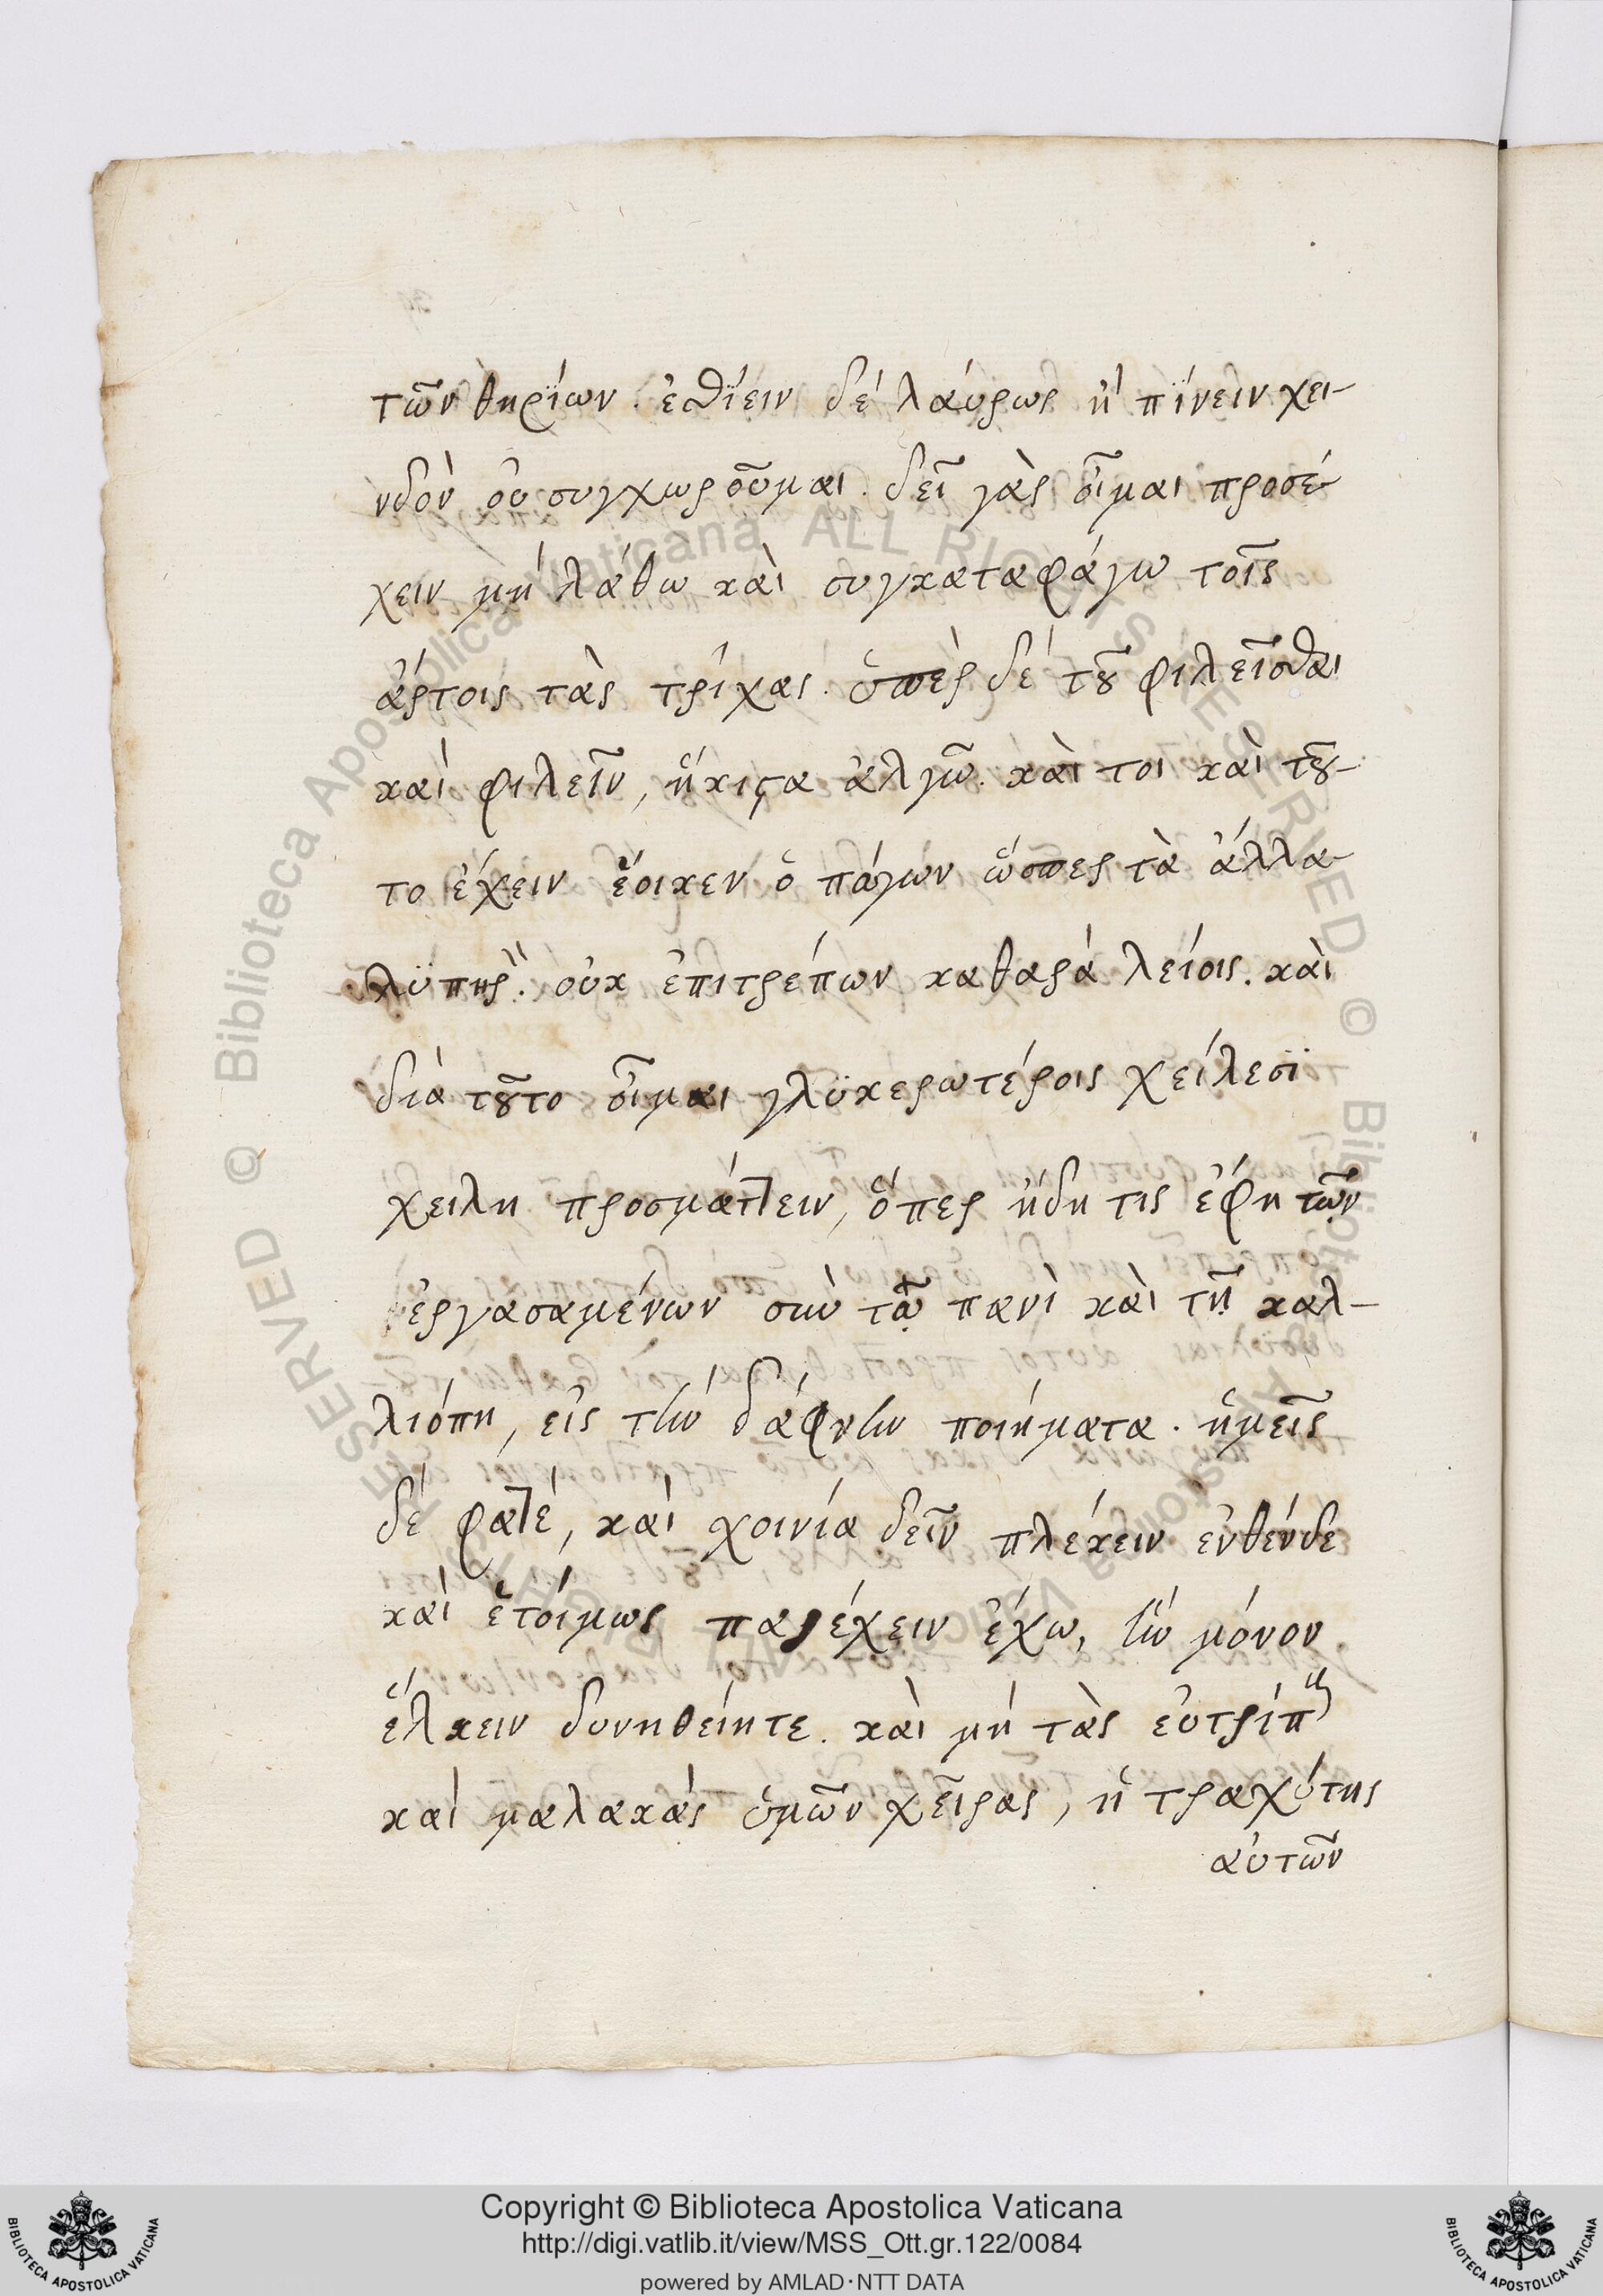 τῶν θηρΐων. ἐσθΐειν δέ λάυρως ἤ πΐνειν χει-
νδὸν οὐ συγχωροῦμαι. δεῖ γὰρ οἶμαι προσέ-
χειν μή λάθω καὶ συγκαταφάγω τοῖς
ἄρτοις τὰς τρίχας. ὑπὲρ δέ τοῦ φιλεῖσθαι
καί φιλεῖν, ἥκιστα ἀλγῶ. καὶ τοι καὶ τοῦ-
το ἔχειν ἔοικεν ὁ πώγων ὥσπερ τὰ ἄλλα
λϋπηρ. οὐκ ἐπιτρέπων καθαρά λείοις. καὶ
διά τοῦτο οἶμαι γλϋκερωτέροις χείλεσϊ
χειλη προσμάττειν, ὅπερ ἤδη τις ἔφη τῶν
ἐργασαμένων σὺν τῷ πανί καὶ τῇ καλ-
λιόπη, εἰς τὴν δάφνην ποιήματα. ἡμεῖς
δέ φατέ, καί χοινία δεῖν πλέκειν ἐνθένδε
καί ἑτοίμως παρέχειν ἔχω, ἢν μόνον
ἕλκειν δυνηθείητε. καὶ μή τὰς εὐτρίπ
καί μαλακάς ὑμῶν χεῖρας, ἡ τραχύτης
αὐτῶν
Copyright © Biblioteca Apostolica Vaticana
http://digi.vatlib.it/view/MSS_Ott.gr.122/0084
powered by AMLAD·NTT DATA